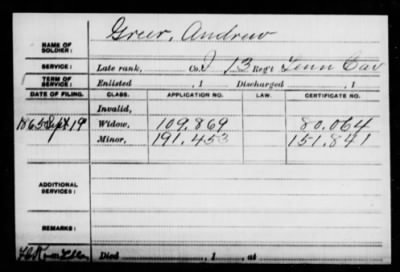 Greer, Andrew
NAME OF SOLDIER:
SERVICE: Late rank, Co. I 13 Reg't Tenn Cav
TERM OF SERVICE: Enlisted , 1 Discharged , 1
DATE OF FILING. CLASS. APPLICATION NO. LAW. CERTIFICATE NO.
Invalid,
1865 Sept 19 Widow, 109.869 80.064
Minor, 191.453 151.841
ADDITIONAL SERVICES:
REMARKS:
Died , 1 , at